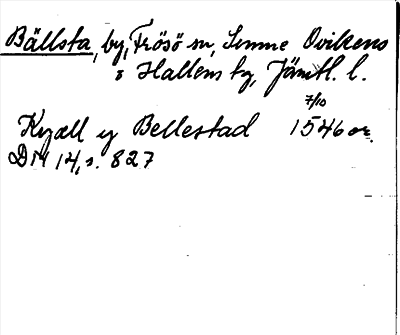 Bällsta, by, Frösö sn, Sunne Ovikens
s Hallens tg, Jämtl. l.
7/10
Kyæll y Bellestad 1546 or.
DN 14, s. 827